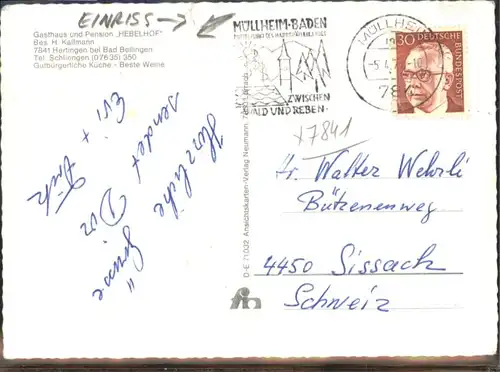 EINRISS
Gasthaus und Pension „HEBELHOF"
Bes. H. Kallmann
7841 Hertingen bei Bad Bellingen
Tel. Schliengen (07635) 350
Gutbürgerliche Küche - Beste Weine
MÜLLHEIM-BADEN
ZWISCHEN
WALD UND REBEN
MÜLLHEIM
-5.4.7
784
30 DEUTSCHE BUNDESPOST
x 7841
Hr. Walter Wehrli
Bützenenweg
4450 Sissach
Schweiz
Herzliche Grüsse
sendet Dir
Evi +
D-E 71032 Ansichtskarten-Verlag Neumann, 7850 Lörrach